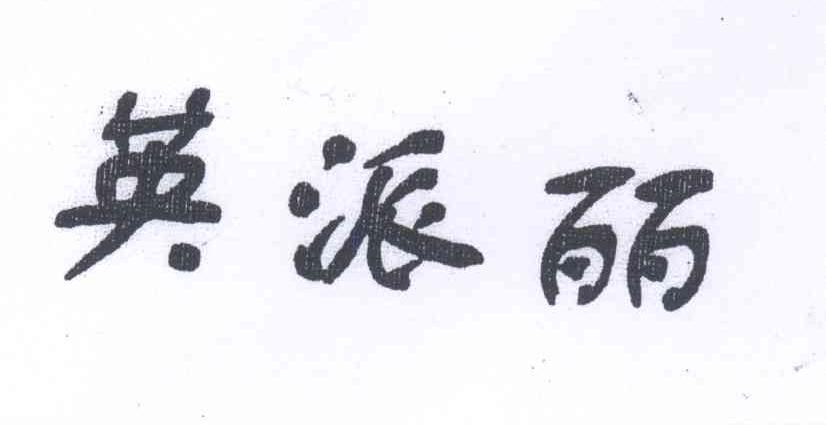 英派丽